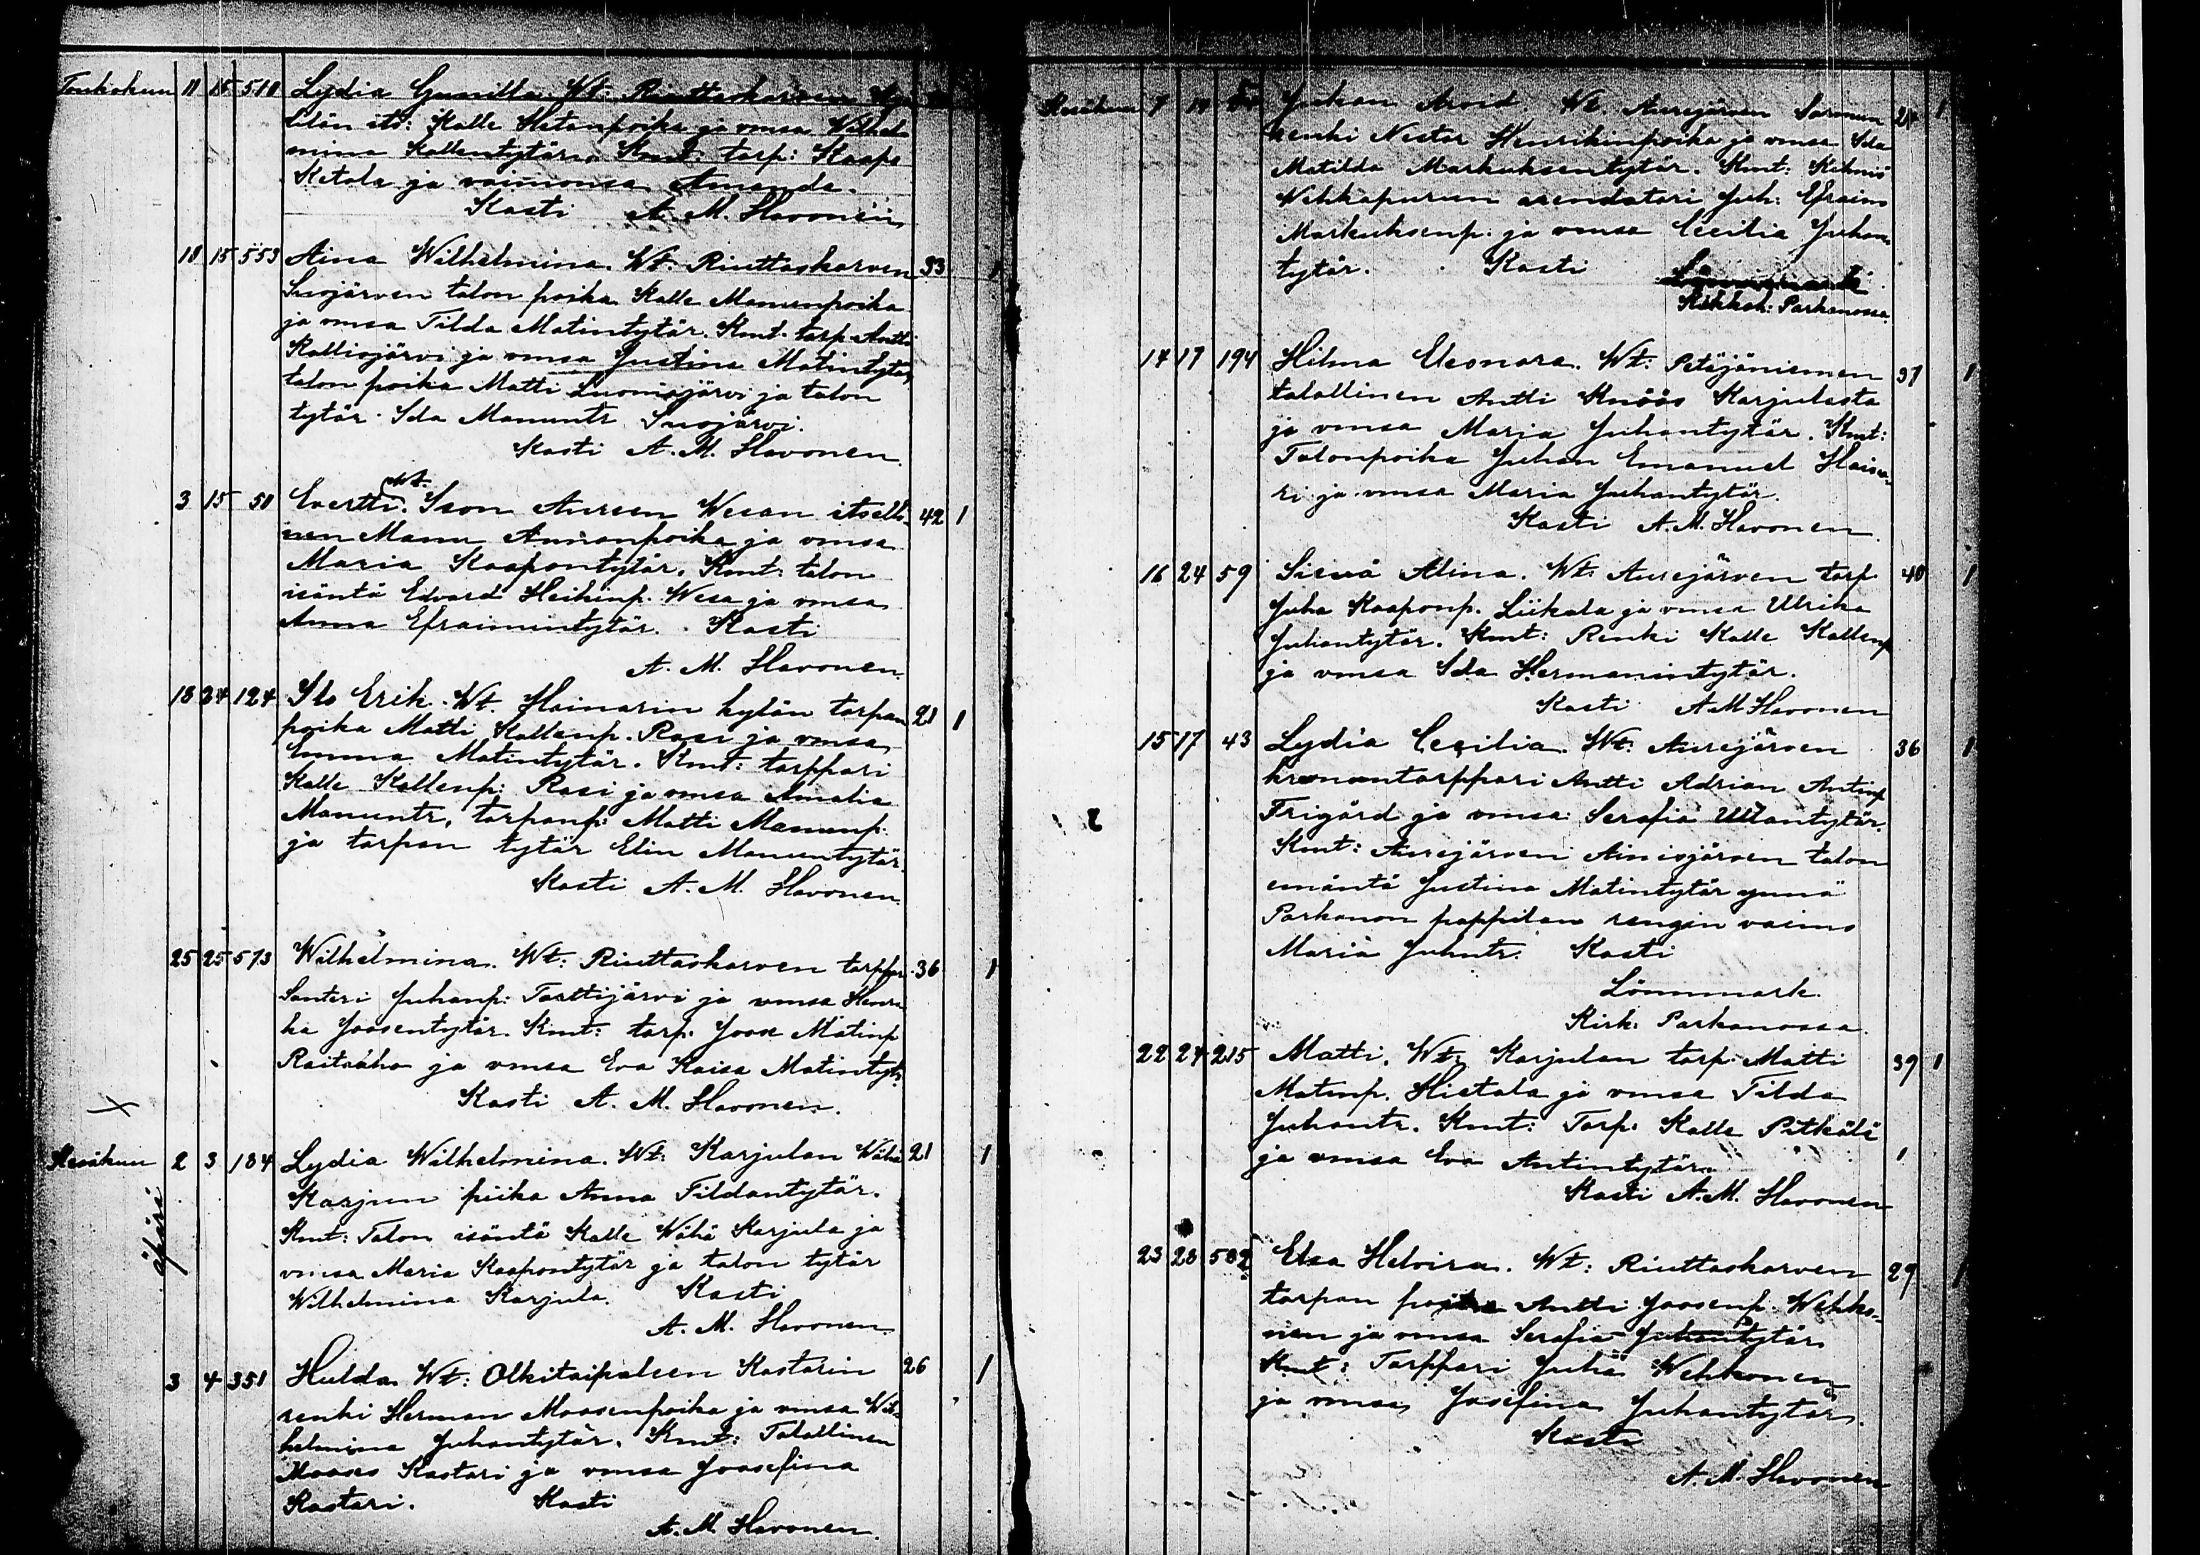 Toukokuu 11 15 510 Lydia Gunilla. Wt. Riuttaskarven
its: Kalle ja vmsa Wilhel
mina Kallentytär. Kmt: torp: Kaapo
Ketola ja vaimonsa Amanda.
Kasti A. M. Havonen
18 15 553 Aina Wilhelmina. Wt. Riuttaskarven 33 1
Suojärven talon poika Kalle Manunpoika
ja vmsa Tilda Matintytär. Kmt. torp. Antti
Kalliojärvi ja vmsa Justina Matintytär,
talon poika Matti Luomajärvi ja talon
tytär Ida Manuntr. Suojärvi.
Kasti A. M. Havonen.
Wt.
3 15 50 Evertti. Ison Aureen Wesan itselli- 42 1
nen Manu Annanpoika ja vmsa
Maria Kaapontytär. Kmt: talon
isäntä Edvard Heikinp. Wesa ja vmsa
Anna Efraimintytär. Kasti
A. M. Havonen.
18 24 124 Ilo Erik. Wt. Hainarin kylän torpan 21 1
poika Matti Kallenp. Rasi ja vmsa
Emma Matintytär. Kmt: torppari
Kalle Kallenp: Rasi ja vmsa Amalia
Manuntr, torpanp: Matti Manunp.
ja torpan tytär Elin Manuntytär.
Kasti A. M. Havonen.
25 25 573 Wilhelmina. Wt: Riuttaskarven torppar. 36 1
Santeri Juhanp: Torttijärvi ja vmsa Henri
ka Joosentytär. Kmt: torp. Joose Matinp
Raitaaho ja vmsa Eva Kaisa Matintytr.
Kasti A. M. Havonen.
Kesäkuu 2 3 134 Lydia Wilhelmina. Wt: Karjulan Wähä 21 1
äpärä
Karjun piika Anna Tildantytär.
Kmt: Talon isäntä Kalle Wähä Karjula ja
vmsa Maria Kaapontytär ja talon tytär
Wilhelmina Karjula. Kasti
A. M. Havonen.
3 4 351 Hulda. Wt: Olkitaipaleen Kastarin 26 1
renki Herman Moosenpoika ja vmsa Wil-
helmina Juhantytär. Kmt: Talollinen
Mooses Kastari ja vmsa Joosefina
Kastari. Kasti
A. M. Havonen.
Kesäkuu 7 14 Juhan Arvid. Wt. Aurejärven Sormun 24 1
renki Nestor Henrikinpoika ja vmsa Ida
Matilda Markuksentytär. Kmt: Kihniö
Nehkapurun arendatori Juh: Efraim
Markuksenp. ja vmsa Cecilia Juhan
tytär. Kasti
Kirkkoh: Parkanossa.
14 17 194 Hilma Eleonora. Wt: Petäjäniemen 37 1
talollinen Antti Knöös Karjulasta
ja vmsa Maria Juhantytär. Kmt:
Talonpoika Juhan Emanuel Haina-
ri ja vmsa Maria Juhantytär.
Kasti A. M. Havonen.
16 24 59 Siiviä Alina. Wt: Aurejärven torp. 40 1
Juha Kaaponp. Liikala ja vmsa Ulrika
Juhantytär. Kmt: Renki Kalle Kallenp
ja vmsa Ida Hermanintytär.
Kasti A M Havonen
15 17 43 Lydia Cecilia. Wt: Aurejärven 36 1
kruununtorppari Antti Adrian Antinp
Frigård ja vmsa Serafia Ullantytär.
Kmt: Aurejärven Ainiojärven talon
emäntä Justina Matintytär ynnä
Parkanon pappilan rengin vaimo
Maria Juhntr. Kasti
Lönnmark.
Kirk: Parkanossa.
22 24 215 Matti. Wt: Karjulan torp. Matti 39 1
Matinp. Hietala ja vmsa Tilda
Juhantr. Kmt: Torp: Kalle Pitkäli
ja vmsa Eva Antintytär.
Kasti A. M. Havonen
23 28 582 Elsa Helvira. Wt: Riuttaskarven 29 1
torpan poika Antti Joosenp. Wehko-
nen ja vmsa Serafia Juhantytär.
Kmt: Torppari Juha Wehkonen
ja vmsa Josefina Juhantytär.
Kasti
A. M. Havonen